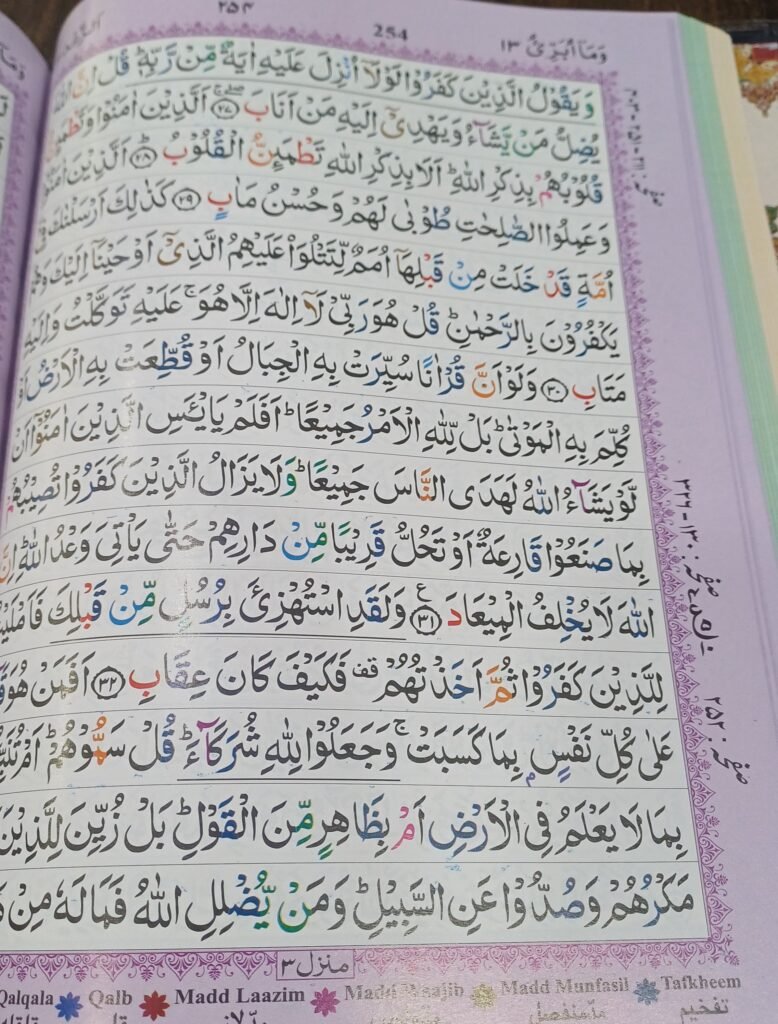 ٢٥٤
254
وَمَآ اُبَرِّئُ ١٣
وَيَقُوْلُ الَّذِيْنَ كَفَرُوْا لَوْلَاۤ اُنْزِلَ عَلَيْهِ اٰيَةٌ مِّنْ رَّبِّهٖؕ قُلْ اِنَّ اللّٰهَ
يُضِلُّ مَنْ يَّشَآءُ وَيَهْدِىْۤ اِلَيْهِ مَنْ اَنَابَ ۖۚ‏﴿۲۷﴾ اَلَّذِيْنَ اٰمَنُوْا وَتَطْمَئِنُّ
قُلُوْبُهُمْ بِذِكْرِ اللّٰهِؕ اَلَا بِذِكْرِ اللّٰهِ تَطْمَئِنُّ الْقُلُوْبُؕ‏﴿۲۸﴾ اَلَّذِيْنَ اٰمَنُوْا
وَعَمِلُوا الصّٰلِحٰتِ طُوْبٰى لَهُمْ وَحُسْنُ مَاٰبٍ‏﴿۲۹﴾ كَذٰلِكَ اَرْسَلْنٰكَ فِىْۤ
اُمَّةٍ قَدْ خَلَتْ مِنْ قَبْلِهَاۤ اُمَمٌ لِّتَتْلُوَا۟ عَلَيْهِمُ الَّذِىْۤ اَوْحَيْنَاۤ اِلَيْكَ وَهُمْ
يَكْفُرُوْنَ بِالرَّحْمٰنِؕ قُلْ هُوَ رَبِّىْ لَاۤ اِلٰهَ اِلَّا هُوَۚ عَلَيْهِ تَوَكَّلْتُ وَاِلَيْهِ
مَتَابِ‏﴿۳۰﴾ وَلَوْ اَنَّ قُرْاٰنًا سُيِّرَتْ بِهِ الْجِبَالُ اَوْ قُطِّعَتْ بِهِ الْاَرْضُ اَوْ
كُلِّمَ بِهِ الْمَوْتٰىؕ بَلْ لِّلّٰهِ الْاَمْرُ جَمِيْعًاؕ اَفَلَمْ يَا۟يْـَٔسِ الَّذِيْنَ اٰمَنُوْۤا اَنْ
لَّوْ يَشَآءُ اللّٰهُ لَهَدَى النَّاسَ جَمِيْعًاؕ وَلَا يَزَالُ الَّذِيْنَ كَفَرُوْا تُصِيْبُهُمْ
بِمَا صَنَعُوْا قَارِعَةٌ اَوْ تَحُلُّ قَرِيْبًا مِّنْ دَارِهِمْ حَتّٰى يَاْتِىَ وَعْدُ اللّٰهِؕ اِنَّ
اللّٰهَ لَا يُخْلِفُ الْمِيْعَادَ‏﴿۳۱﴾ ع وَلَقَدِ اسْتُهْزِئَ بِرُسُلٍ مِّنْ قَبْلِكَ فَاَمْلَيْتُ
لِلَّذِيْنَ كَفَرُوْا ثُمَّ اَخَذْتُهُمْ قف فَكَيْفَ كَانَ عِقَابِ‏﴿۳۲﴾ اَفَمَنْ هُوَ
عَلٰى كُلِّ نَفْسٍۢ بِمَا كَسَبَتْۚ وَجَعَلُوْا لِلّٰهِ شُرَكَآءَؕ قُلْ سَمُّوْهُمْؕ اَمْ
بِمَا لَا يَعْلَمُ فِى الْاَرْضِ اَمْ بِظَاهِرٍ مِّنَ الْقَوْلِؕ بَلْ زُيِّنَ لِلَّذِيْنَ
مَكْرُهُمْ وَصُدُّوْا عَنِ السَّبِيْلِؕ وَمَنْ يُّضْلِلِ اللّٰهُ فَمَا لَهٗ مِنْ
منزل ٣
Qalqala Qalb Madd Laazim Madd Waajib Madd Munfasil Tafkheem
مدّ منفصل تفخيم